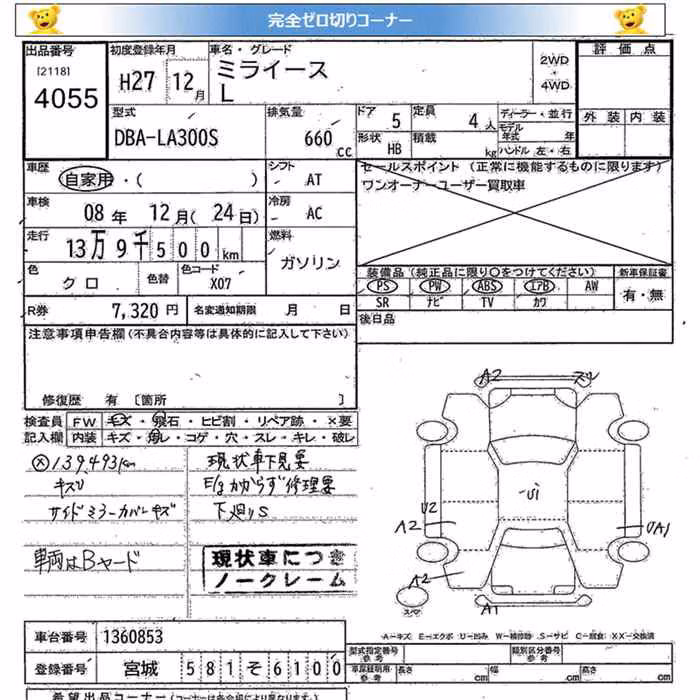 完全ゼロ切りコーナー
出品番号
[2118]
4055
初度登録年月
H27 12月
車名・グレード
ミライース
L
2WD
・
4WD
評価点
外装 内装
型式
DBA-LA300S
排気量
660 cc
ドア 5
定員 4人
形状 HB
積載 kg
ディーラー・並行
モデル年式 年
ハンドル 左・右
車歴
自家用・( )
シフト AT
車検
08年 12月(24日)
冷房 AC
走行
13万9千500km
燃料
ガソリン
色
クロ
色替
色コード
X07
R券 7,320円
名変通知期限 月 日
セールスポイント(正常に機能するものに限ります)
ワンオーナーユーザー買取車
装備品(純正品に限り○をつけてください)
新車保証書
PS PW ABS エアB AW
SR ナビ TV カワ
有・無
後日品
注意事項申告欄(不具合内容等は具体的に記入して下さい)
修復歴 有 [箇所 ]
検査員
記入欄
FW キズ・飛石・ヒビ割・リペア跡・×要
内装 キズ・汚レ・コゲ・穴・スレ・キレ・破レ
139,493km
キズU
サイドミラーカバーキズ
車両はBヤード
現状車下見要
E/gかからず修理要
下廻りS
現状車につき
ノークレーム
A2
U2
A2
U1
UA1
A2
A1
スペア
A―キズ E―エクボ U―凹み W―補修跡 S―サビ C―腐食 XX―交換済
車台番号 1360853
登録番号 宮城 581 そ 6100
型式指定番号
参考
類別区分番号
参考
車庫証明用
参考
長さ cm 幅 cm 高さ cm
希望出品コーナー(コーナーは各会場により異なります)